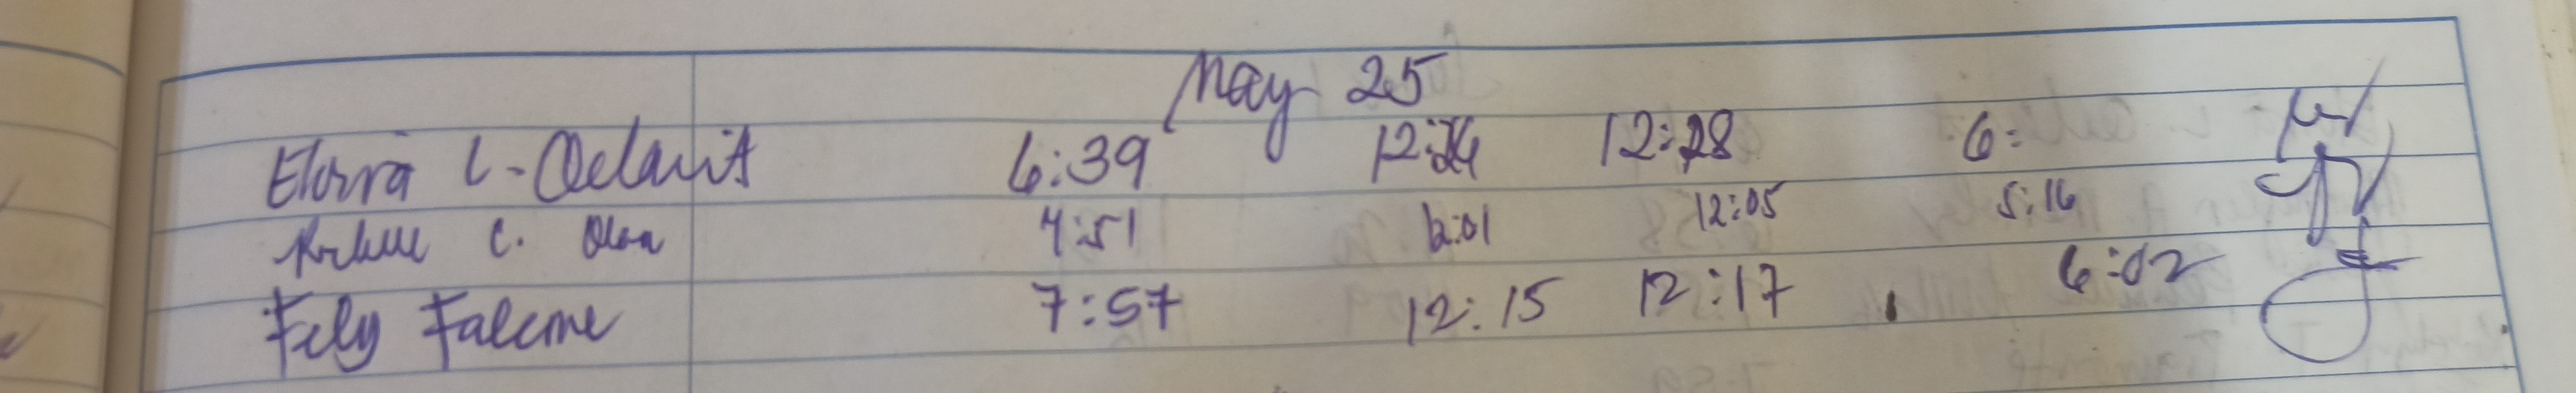 May 25
Elvira L. Odarit 6:39 12:26 12:28 6:
C. Olan 7:51 12:01 12:05 5:16
Fely Falcone 7:57 12:15 12:17 6:02